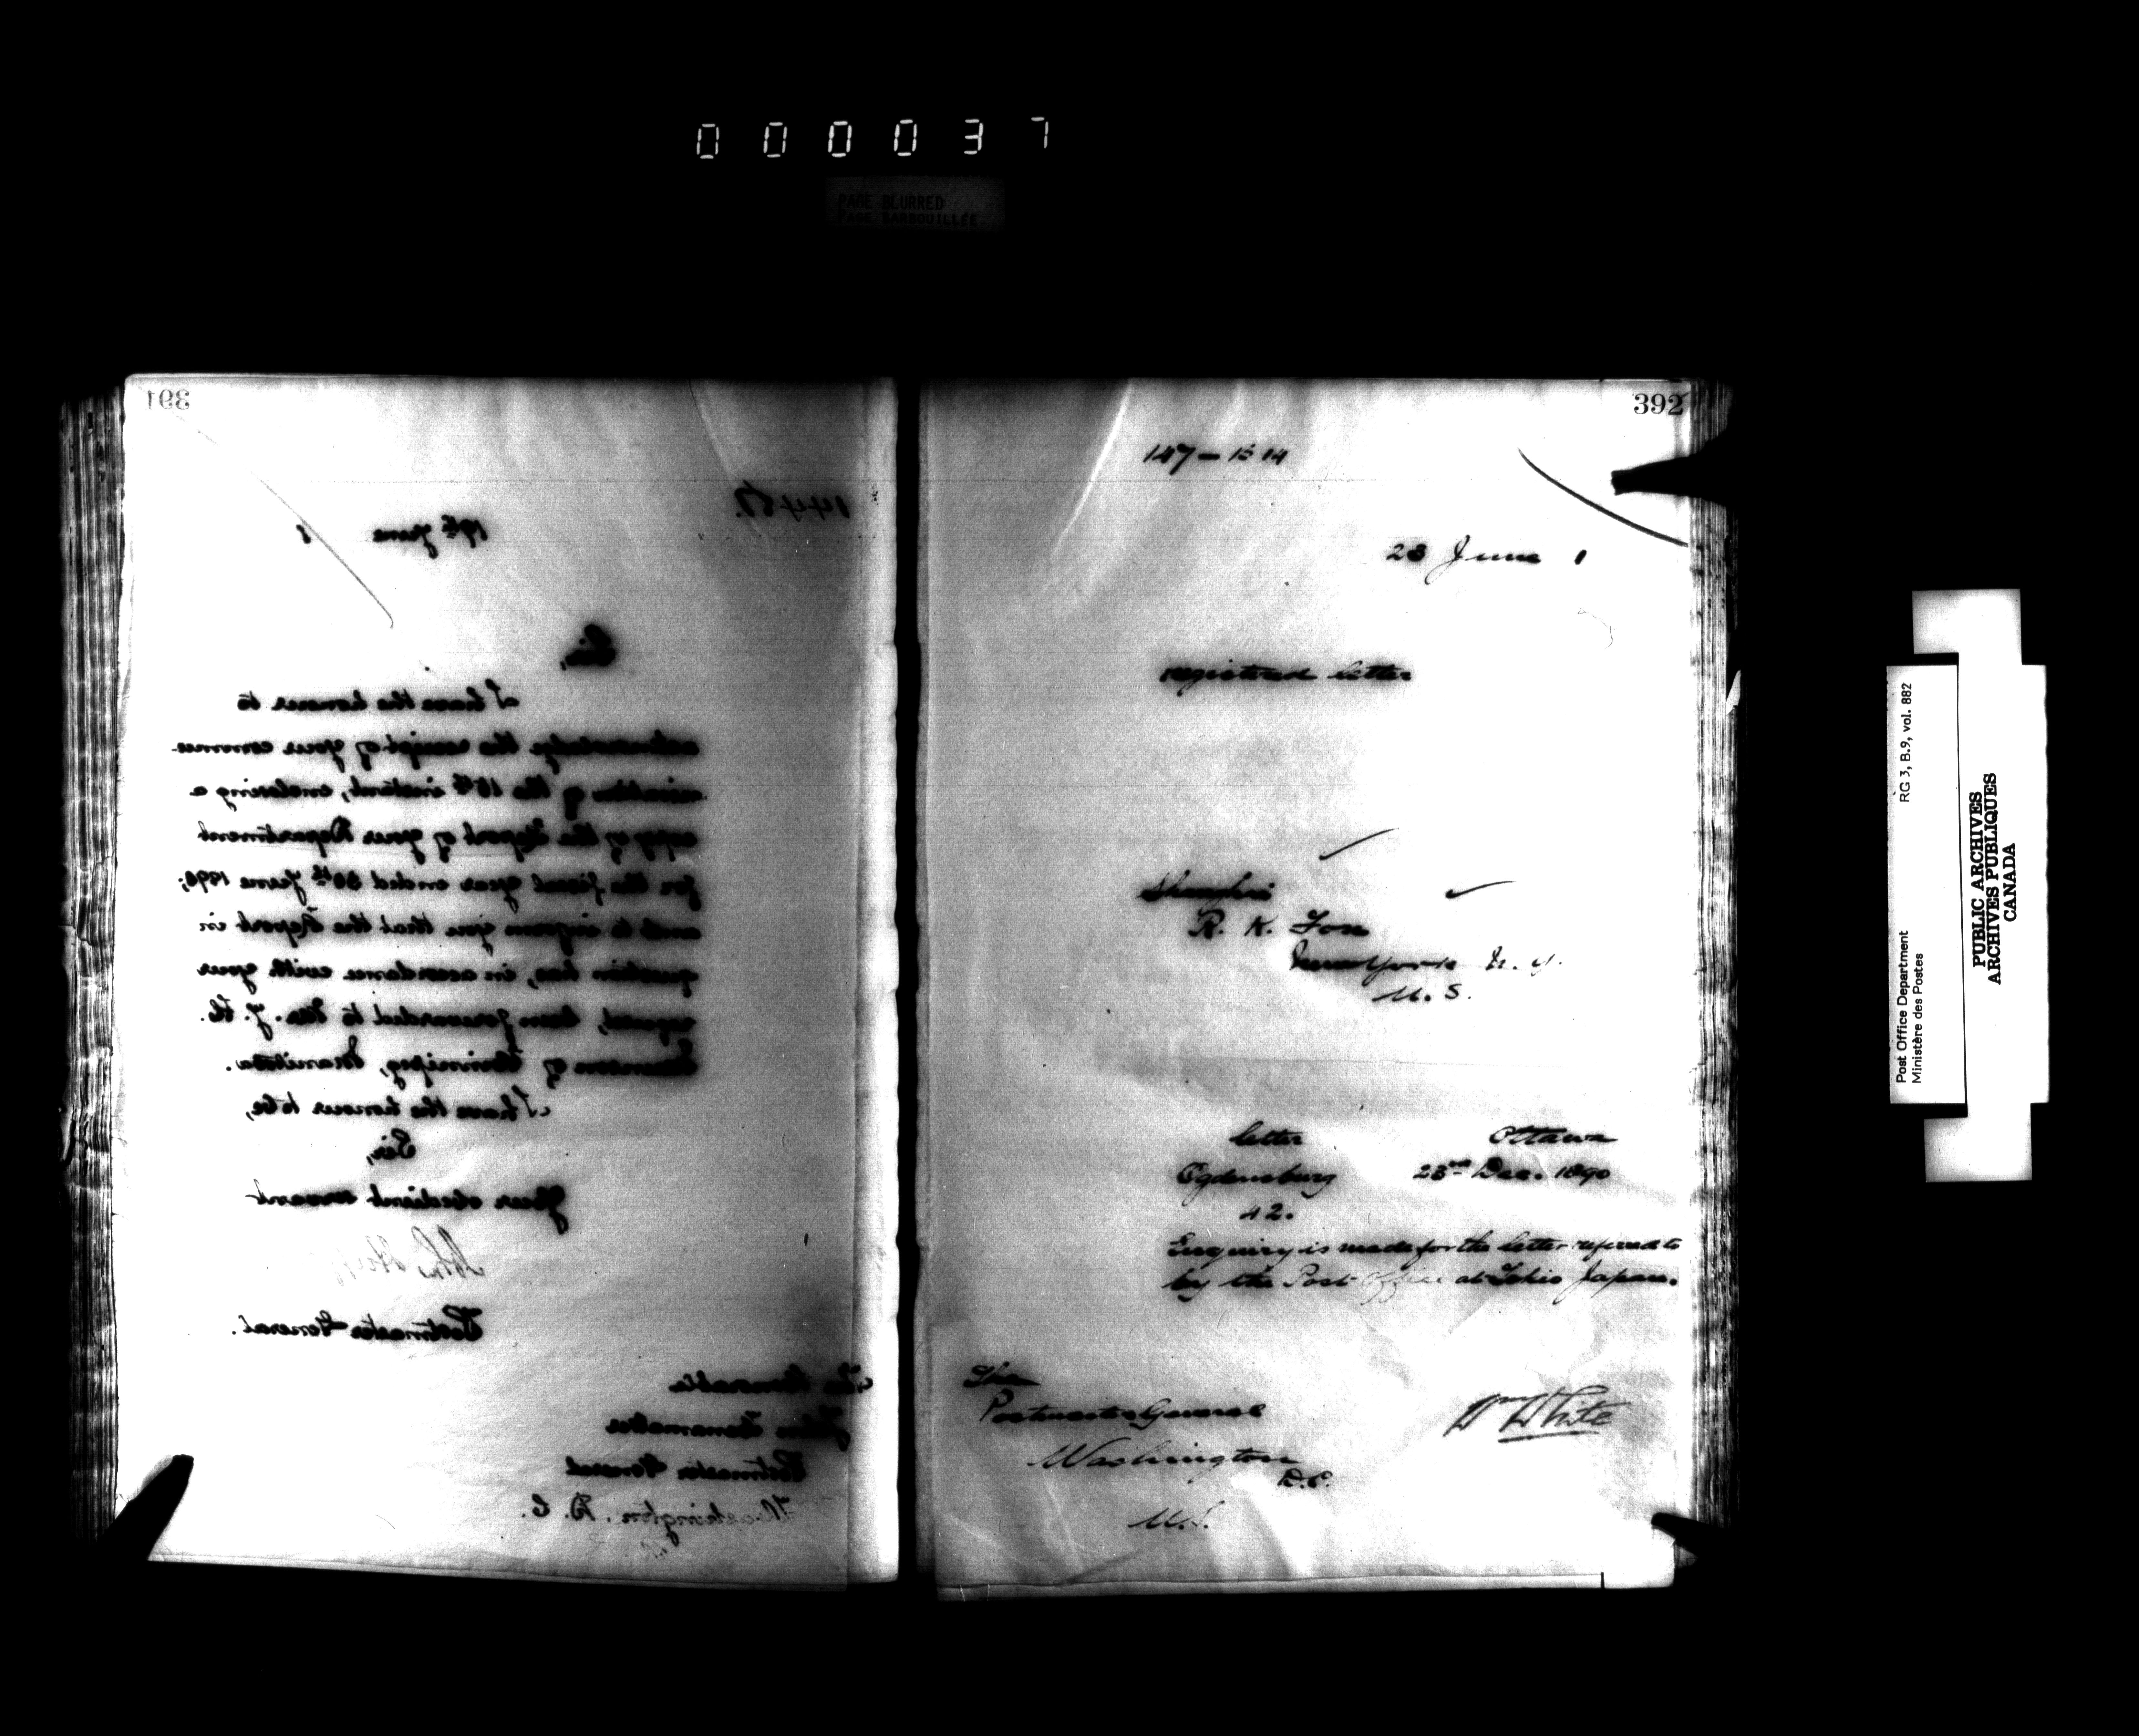 000037
PAGE BLURRED
PAGE BARBOUILLÉE
391
14487.
19th June 1
Sir,
I have the honour to
acknowledge the receipt of your commu-
nication of the 16th instant, enclosing a
copy of the Report of your Department
for the fiscal year ended 30th June 1890;
and to inform you that the Report in
question has, in accordance with your
request, been forwarded to Mr. J. H.
of Winnipeg, Manitoba.
I have the honour to be,
Sir,
Your obedient servant
Postmaster General.
The Honorable
John Wanamaker
Postmaster General
Washington. D. C.
392
147 - 1514
23 June 1
registered letter
Shanghai
R. K. Fox
New York N. Y.
U. S.
letter Ottawa
Ogdensburg 23rd Dec. 1890
42.
Enquiry is made for the letter referred to
by the Post Office at Tokio Japan.
The
Postmaster General
Washington
D.C.
U.S.
Wm White
Post Office Department
Ministère des Postes
RG 3, B.9, vol. 882
PUBLIC ARCHIVES
ARCHIVES PUBLIQUES
CANADA